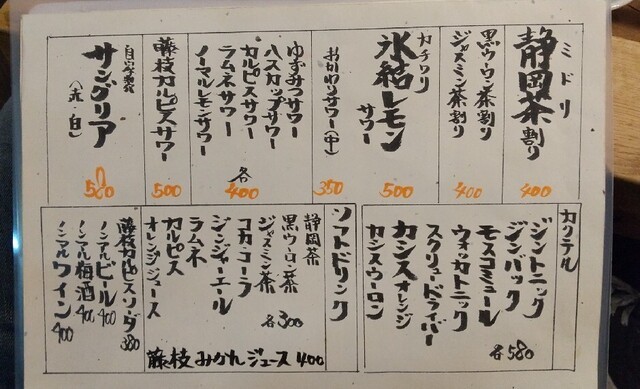 ミドリ
静岡茶割り
400
黒ウーロン茶割り
ジャスミン茶割り
400
カチワリ
氷結レモン
サワー
500
おかわりサワー(中)
350
ゆずみつサワー
ハスカップサワー
カルピスサワー
ラムネサワー
ノーマルレモンサワー
各
400
藤枝カルピスサワー
500
自家製
サングリア
(赤・白)
580
カクテル
ジントニック
ジンバック
モスコミュール
ウォッカトニック
スクリュードライバー
カシスオレンジ
カシスウーロン
各580
ソフトドリンク
静岡茶
黒ウーロン茶
ジャスミン茶
各300
コカ・コーラ
ジンジャーエール
ラムネ
カルピス
オレンジジュース
藤枝みかんジュース400
藤枝カルピスソーダ
380
ノンアルビール
400
ノンアル梅酒
400
ノンアルワイン
400